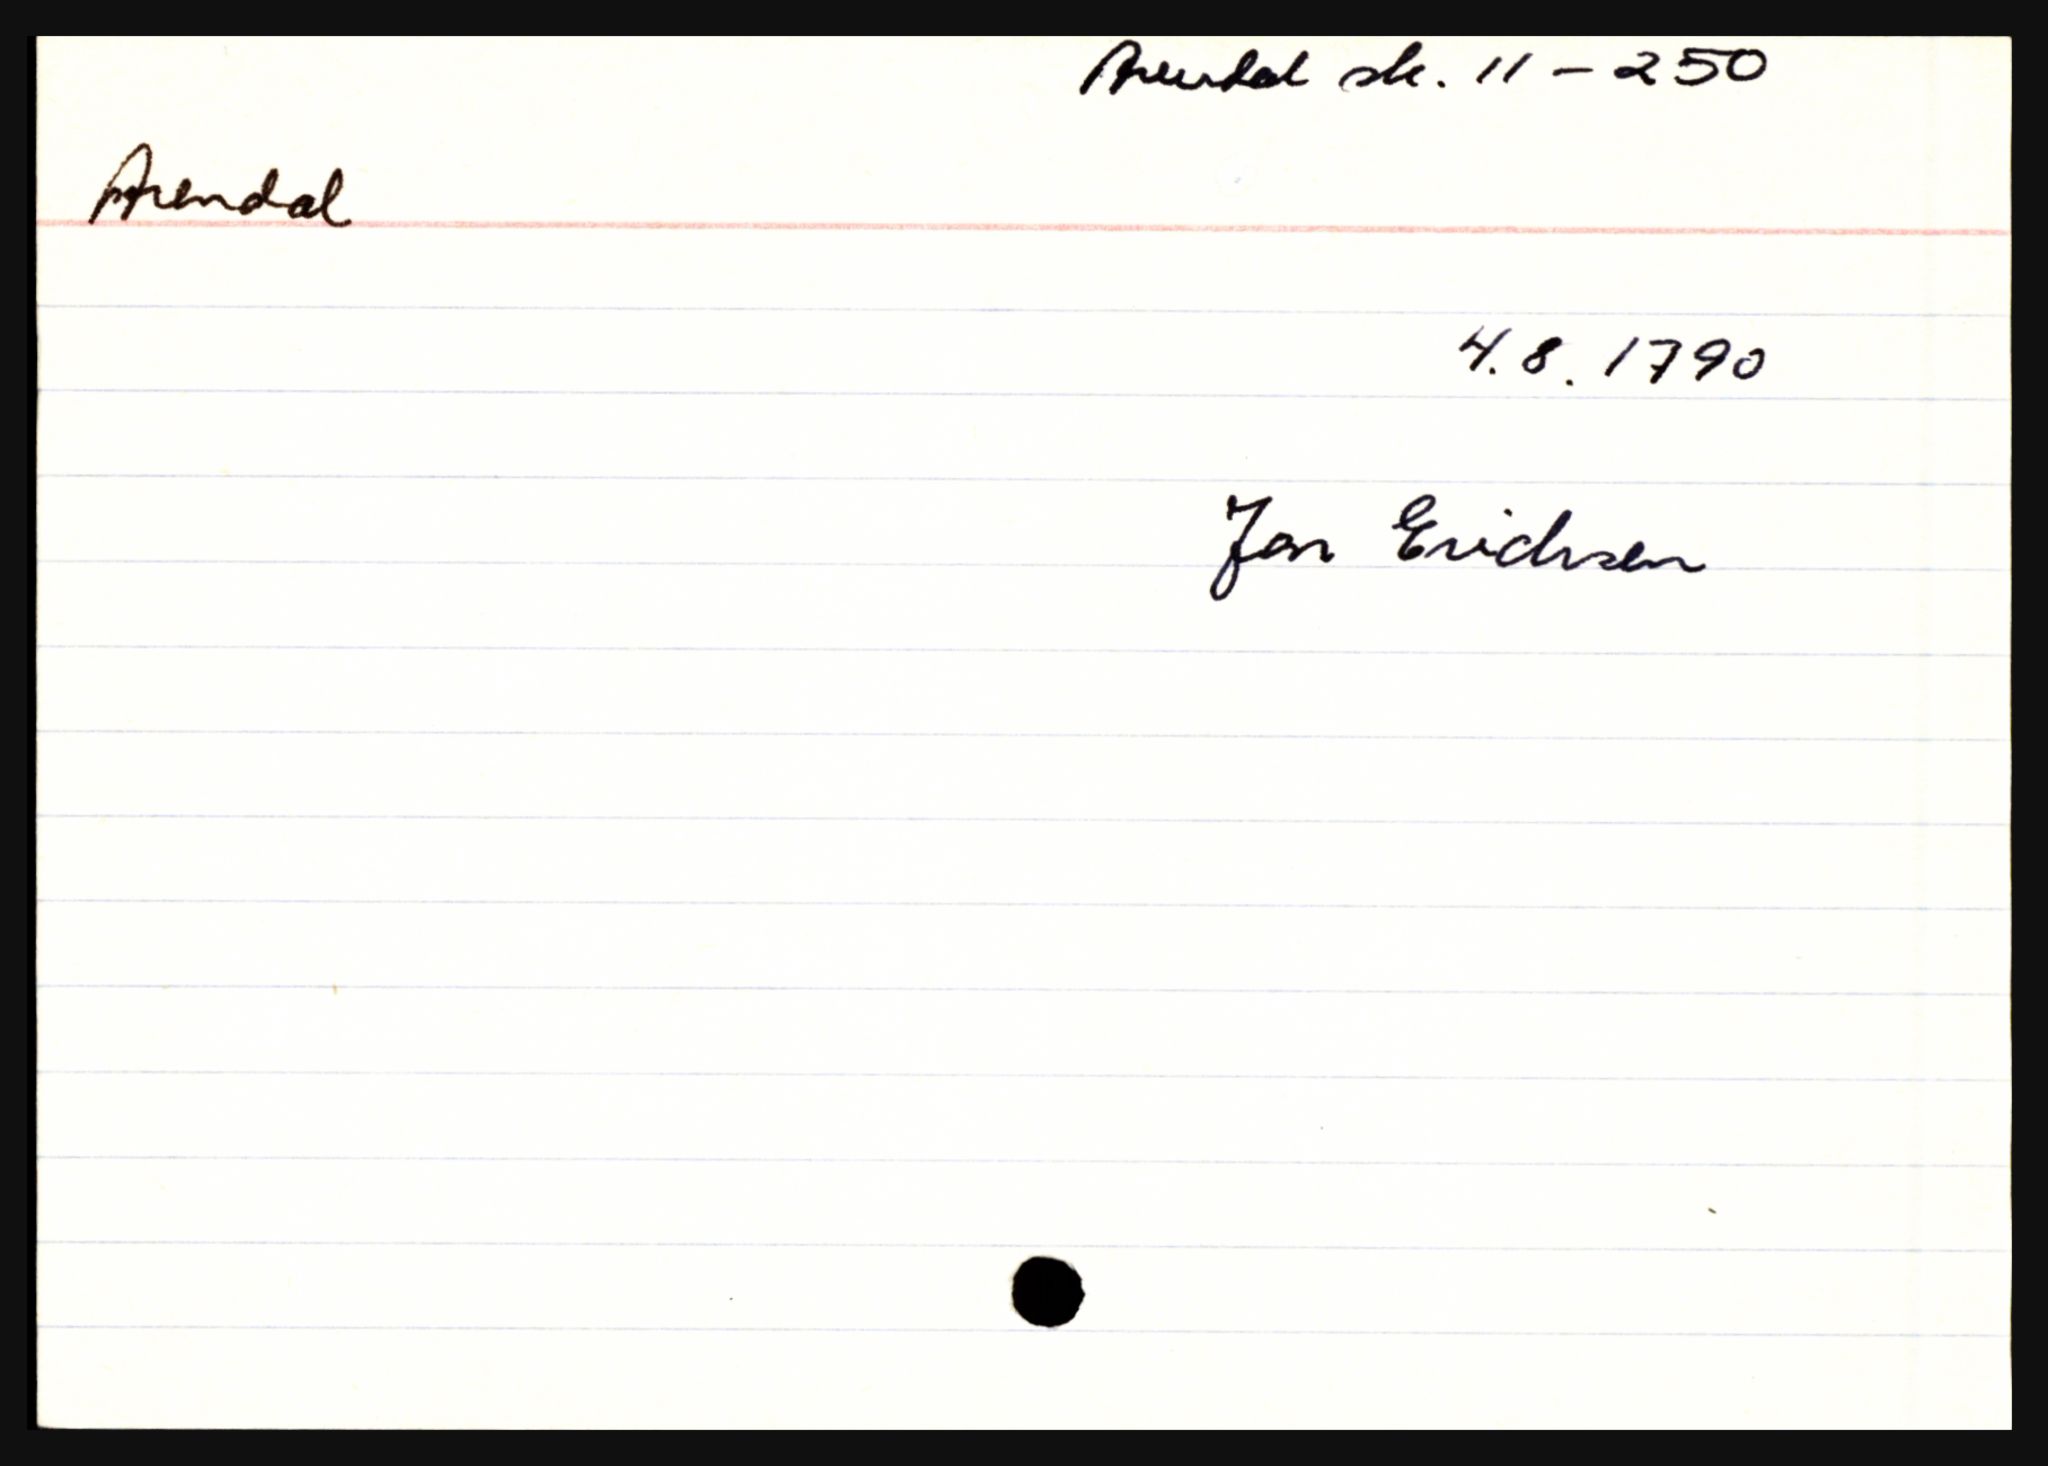 Arendal sk. 11 - 250
Arendal
4.8.1790
Jon Erichsen